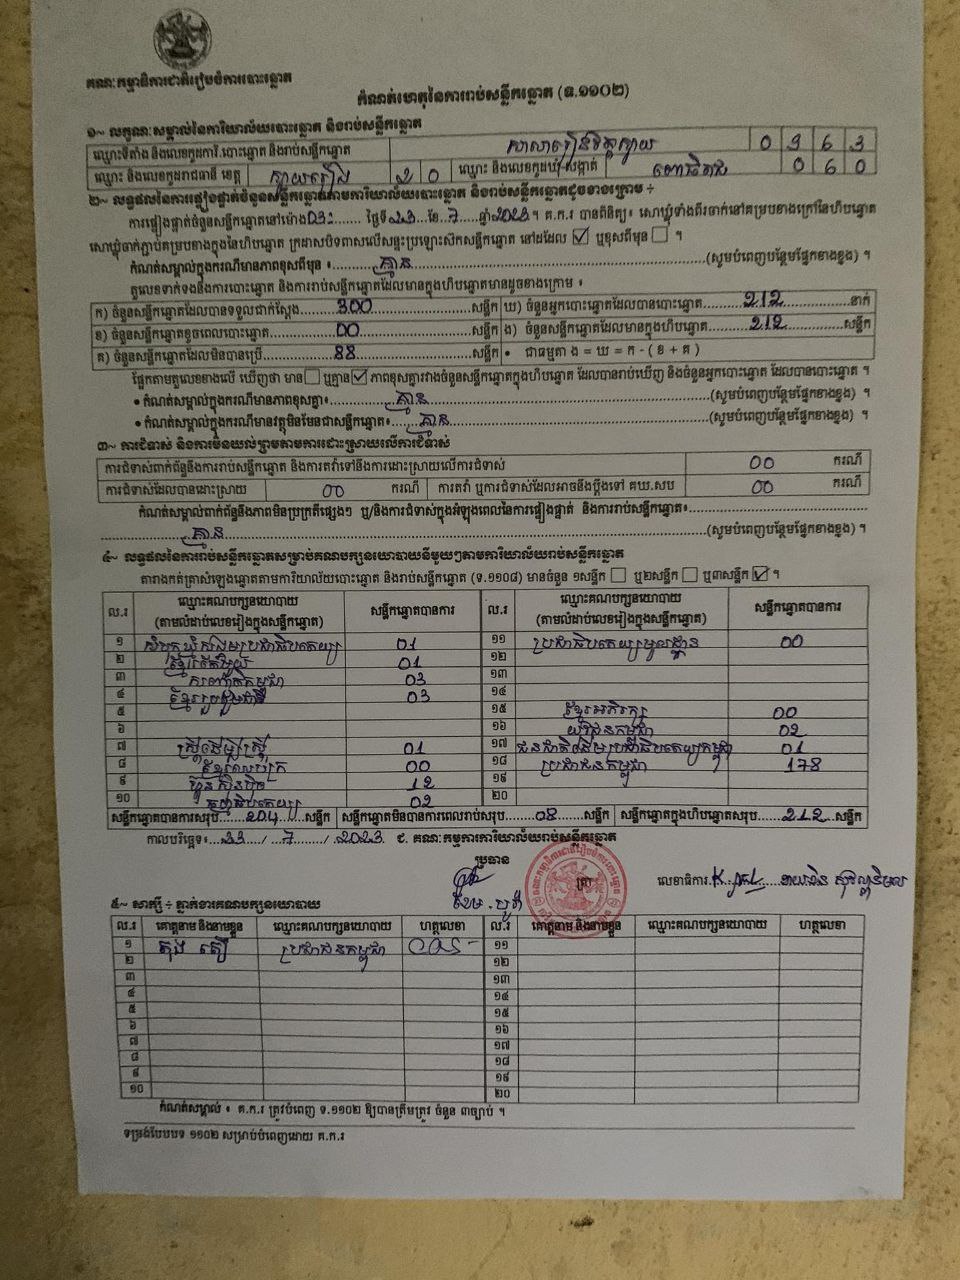 គណៈកម្មាធិការជាតិរៀបចំការបោះឆ្នោត
កំណត់ហេតុនៃការរាប់សន្លឹកឆ្នោត (ទ.១១០២)
១~ លក្ខណៈសម្គាល់នៃការិយាល័យបោះឆ្នោត និងរាប់សន្លឹកឆ្នោត
ឈ្មោះទីតាំង និងលេខកូដការិ.បោះឆ្នោត និងរាប់សន្លឹកឆ្នោត 0 9 6 3
ឈ្មោះ និងលេខកូដរាជធានី ខេត្ត ស្វាយរៀង 2 0 ឈ្មោះ និងលេខកូដឃុំ-សង្កាត់ 0 6 0
២~ លទ្ធផលនៃការផ្ទៀងផ្ទាត់ចំនួនសន្លឹកឆ្នោតតាមការិយាល័យបោះឆ្នោត និងរាប់សន្លឹកឆ្នោតដូចខាងក្រោម ÷
ការផ្ទៀងផ្ទាត់ចំនួនសន្លឹកឆ្នោតនៅម៉ោង 03: ថ្ងៃទី 23 ខែ 7 ឆ្នាំ 2023 ។ គ.ក.រ បានពិនិត្យ៖ សោឃ្លុំទាំងពីរចាក់នៅគម្របខាងក្រៅនៃហិបឆ្នោត
សោឃ្លុំចាក់ភ្ជាប់គម្របខាងក្នុងនៃហិបឆ្នោត ក្រដាសបិទពាសលើសន្ទះប្រឡោះសឹកសន្លឹកឆ្នោត នៅដដែល ☑ ឬខុសពីមុន ☐ ។
កំណត់សម្គាល់ក្នុងករណីមានភាពខុសពីមុន ៖ គ្មាន (សូមបំពេញបន្ថែមផ្នែកខាងខ្នង) ។
តួលេខទាក់ទងនឹងការបោះឆ្នោត និងការរាប់សន្លឹកឆ្នោតដែលមានក្នុងហិបឆ្នោតមានដូចខាងក្រោម ៖
ក) ចំនួនសន្លឹកឆ្នោតដែលបានទទួលជាក់ស្តែង 300 សន្លឹក ឃ) ចំនួនអ្នកបោះឆ្នោតដែលបានបោះឆ្នោត 212 នាក់
ខ) ចំនួនសន្លឹកឆ្នោតខូចពេលបោះឆ្នោត 00 សន្លឹក ង) ចំនួនសន្លឹកឆ្នោតដែលមានក្នុងហិបឆ្នោត 212 សន្លឹក
គ) ចំនួនសន្លឹកឆ្នោតដែលមិនបានប្រើ 88 សន្លឹក • ជាធម្មតា ង = ឃ = ក - ( ខ + គ )
ផ្អែកតាមតួលេខខាងលើ ឃើញថា មាន ☐ ឬគ្មាន ☑ ភាពខុសគ្នារវាងចំនួនសន្លឹកឆ្នោតក្នុងហិបឆ្នោត ដែលបានរាប់ឃើញ និងចំនួនអ្នកបោះឆ្នោត ដែលបានបោះឆ្នោត ។
• កំណត់សម្គាល់ក្នុងករណីមានភាពខុសគ្នា៖ គ្មាន (សូមបំពេញបន្ថែមផ្នែកខាងខ្នង) ។
• កំណត់សម្គាល់ក្នុងករណីមានវត្ថុមិនមែនជាសន្លឹកឆ្នោត៖ គ្មាន (សូមបំពេញបន្ថែមផ្នែកខាងខ្នង) ។
៣~ ការជំទាស់ និងការមិនយល់ព្រមតាមការដោះស្រាយលើការជំទាស់
ការជំទាស់ពាក់ព័ន្ធនឹងការរាប់សន្លឹកឆ្នោត និងការតវ៉ាទៅនឹងការដោះស្រាយលើការជំទាស់ 00 ករណី
ការជំទាស់ដែលបានដោះស្រាយ 00 ករណី ការតវ៉ា ឬការជំទាស់ដែលអាចនឹងប្តឹងទៅ គឃ.សប 00 ករណី
កំណត់សម្គាល់ពាក់ព័ន្ធនឹងភាពមិនប្រក្រតីផ្សេងៗ ឬ/និងការជំទាស់ក្នុងអំឡុងពេលនៃការផ្ទៀងផ្ទាត់ និងការរាប់សន្លឹកឆ្នោត៖
គ្មាន (សូមបំពេញបន្ថែមផ្នែកខាងខ្នង) ។
៤~ លទ្ធផលនៃការរាប់សន្លឹកឆ្នោតសម្រាប់គណបក្សនយោបាយនីមួយៗតាមការិយាល័យរាប់សន្លឹកឆ្នោត
តារាងកត់ត្រាសំឡេងឆ្នោតតាមការិយាល័យបោះឆ្នោត និងរាប់សន្លឹកឆ្នោត (ទ.១១០៨) មានចំនួន ១សន្លឹក ☐ ឬ២សន្លឹក ☐ ឬ៣សន្លឹក ☑ ។
ល.រ ឈ្មោះគណបក្សនយោបាយ (តាមលំដាប់លេខរៀងក្នុងសន្លឹកឆ្នោត) សន្លឹកឆ្នោតបានការ ល.រ ឈ្មោះគណបក្សនយោបាយ (តាមលំដាប់លេខរៀងក្នុងសន្លឹកឆ្នោត) សន្លឹកឆ្នោតបានការ
១ សំបុកឃ្មុំសង្គមប្រជាធិបតេយ្យ 01 ១១ ប្រជាធិបតេយ្យមូលដ្ឋាន 00
២ ខ្មែរតែមួយ 01 ១២
៣ សញ្ជាតិកម្ពុជា 03 ១៣
៤ ខ្មែររួបរួមជាតិ 03 ១៤
៥ ១៥ ខ្មែរអភិរក្ស 00
៦ ១៦ យុវជនកម្ពុជា 02
៧ ស្ត្រីដើម្បីស្ត្រី 01 ១៧ ជនជាតិដើមប្រជាធិបតេយ្យកម្ពុជា 01
៨ 00 ១៨ ប្រជាជនកម្ពុជា 178
៩ ហ្វ៊ុនស៊ិនប៉ិច 12 ១៩
១០ ធម្មាធិបតេយ្យ 02 ២០
សន្លឹកឆ្នោតបានការសរុប 204 សន្លឹក សន្លឹកឆ្នោតមិនបានការពេលរាប់សរុប 08 សន្លឹក សន្លឹកឆ្នោតក្នុងហិបឆ្នោតសរុប 212 សន្លឹក
កាលបរិច្ឆេទ៖ 23 / 7 / 2023 ជ. គណៈកម្មការការិយាល័យរាប់សន្លឹកឆ្នោត
ប្រធាន
លេខាធិការ
៥~ សាក្សី ÷ ភ្នាក់ងារគណបក្សនយោបាយ
ល.រ គោត្តនាម និងនាមខ្លួន ឈ្មោះគណបក្សនយោបាយ ហត្ថលេខា ល.រ គោត្តនាម និងនាមខ្លួន ឈ្មោះគណបក្សនយោបាយ ហត្ថលេខា
១ ប្រជាជនកម្ពុជា ១១
២ ១២
៣ ១៣
៤ ១៤
៥ ១៥
៦ ១៦
៧ ១៧
៨ ១៨
៩ ១៩
១០ ២០
កំណត់សម្គាល់ ៖ គ.ក.រ ត្រូវបំពេញ ទ.១១០២ ឱ្យបានត្រឹមត្រូវ ចំនួន ៣ច្បាប់ ។
ទម្រង់បែបបទ ១១០២ សម្រាប់បំពេញដោយ គ.ក.រ